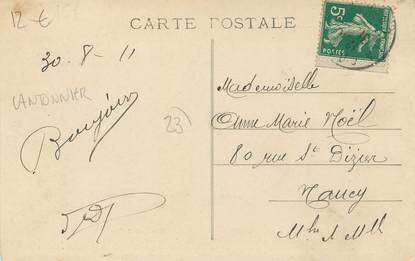 12-€
CARTE POSTALE
5c
POSTES
30-8-11
CANTONNIER
Bonjour
23
Mademoiselle
Anne Marie Noël
80 rue St Dizier
Nancy
Mthe & Mlle